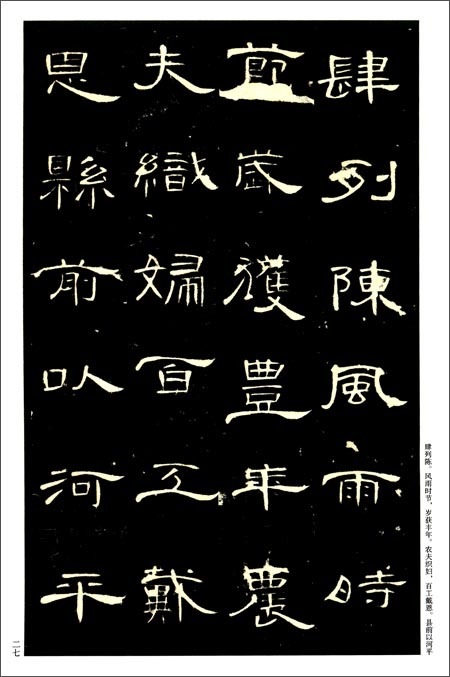 肆列陳風雨時
節歲獲豐年農
夫織婦百工戴
恩縣前以河平
肆列陈。风雨时节，岁获丰年。农夫织妇，百工戴恩。县前以河平
二七